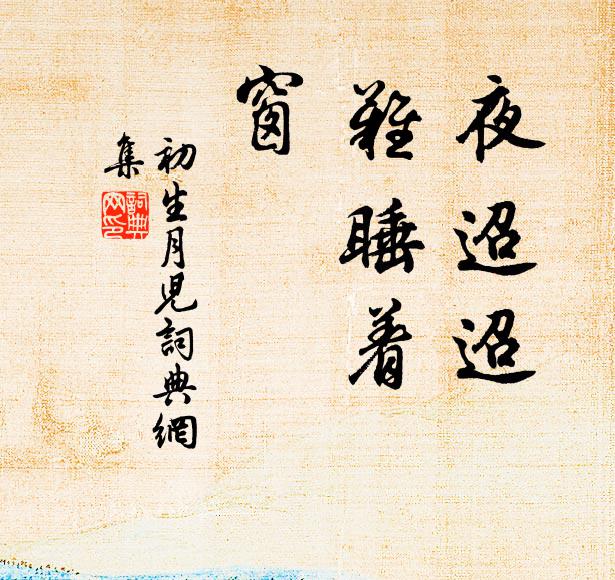 夜迢迢
難睡着
窗
初生月兒詞典網
集
詞典
网印